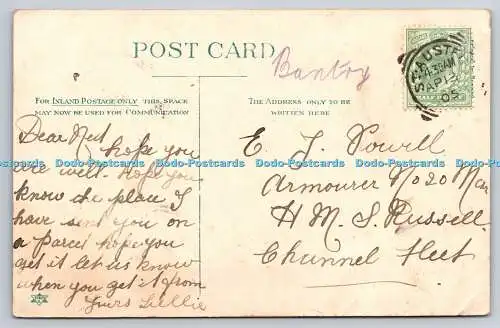 POST CARD
Bantry
FOR INLAND POSTAGE ONLY THIS SPACE
MAY NOW BE USED FOR COMMUNICATION
THE ADDRESS ONLY TO BE
WRITTEN HERE
ST AUSTELL
AP 12
05
Dear Nat
hope you
are well. Hope you
know the place I
have sent you on
a Parcel hope you
get it let us know
when you get it from
Yours Lillie
E J Powell
Armourer No 20 Mess
H M S Russell
Channel Fleet
Dodo-Postcards Dodo-Postcards Dodo-Postcards Dodo-Postcards Dodo-Postcards Dodo-Postcards